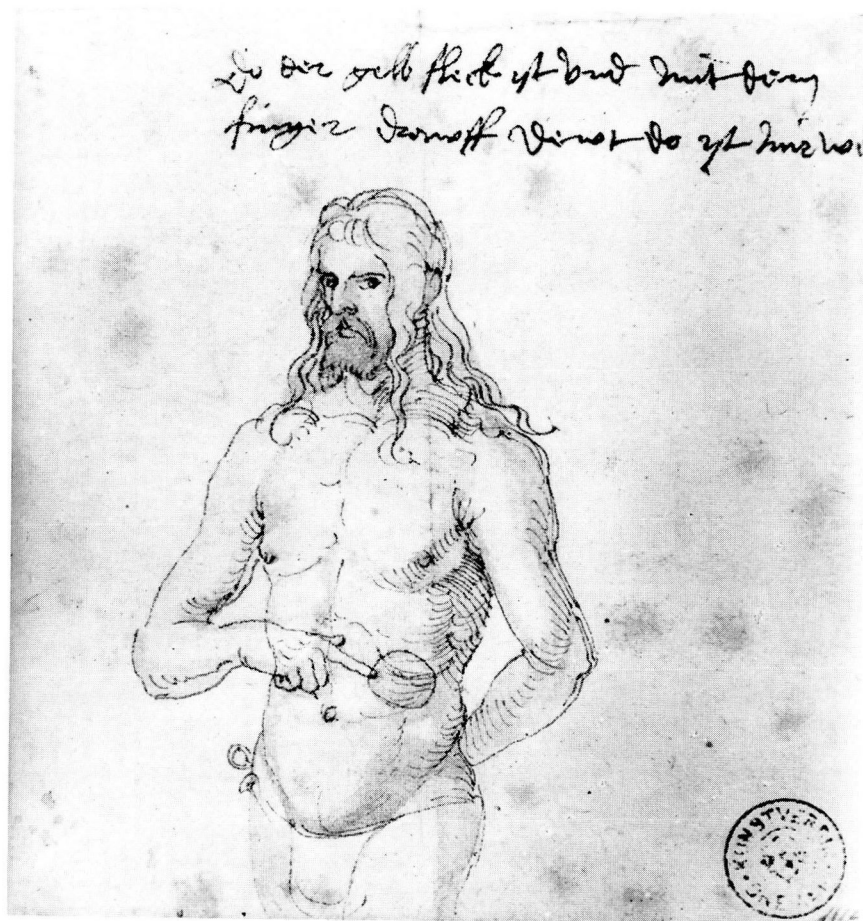 Do der gelb fleck ist vnd mit dem
finger drawff dewt do ist mir we
KUNSTVEREIN